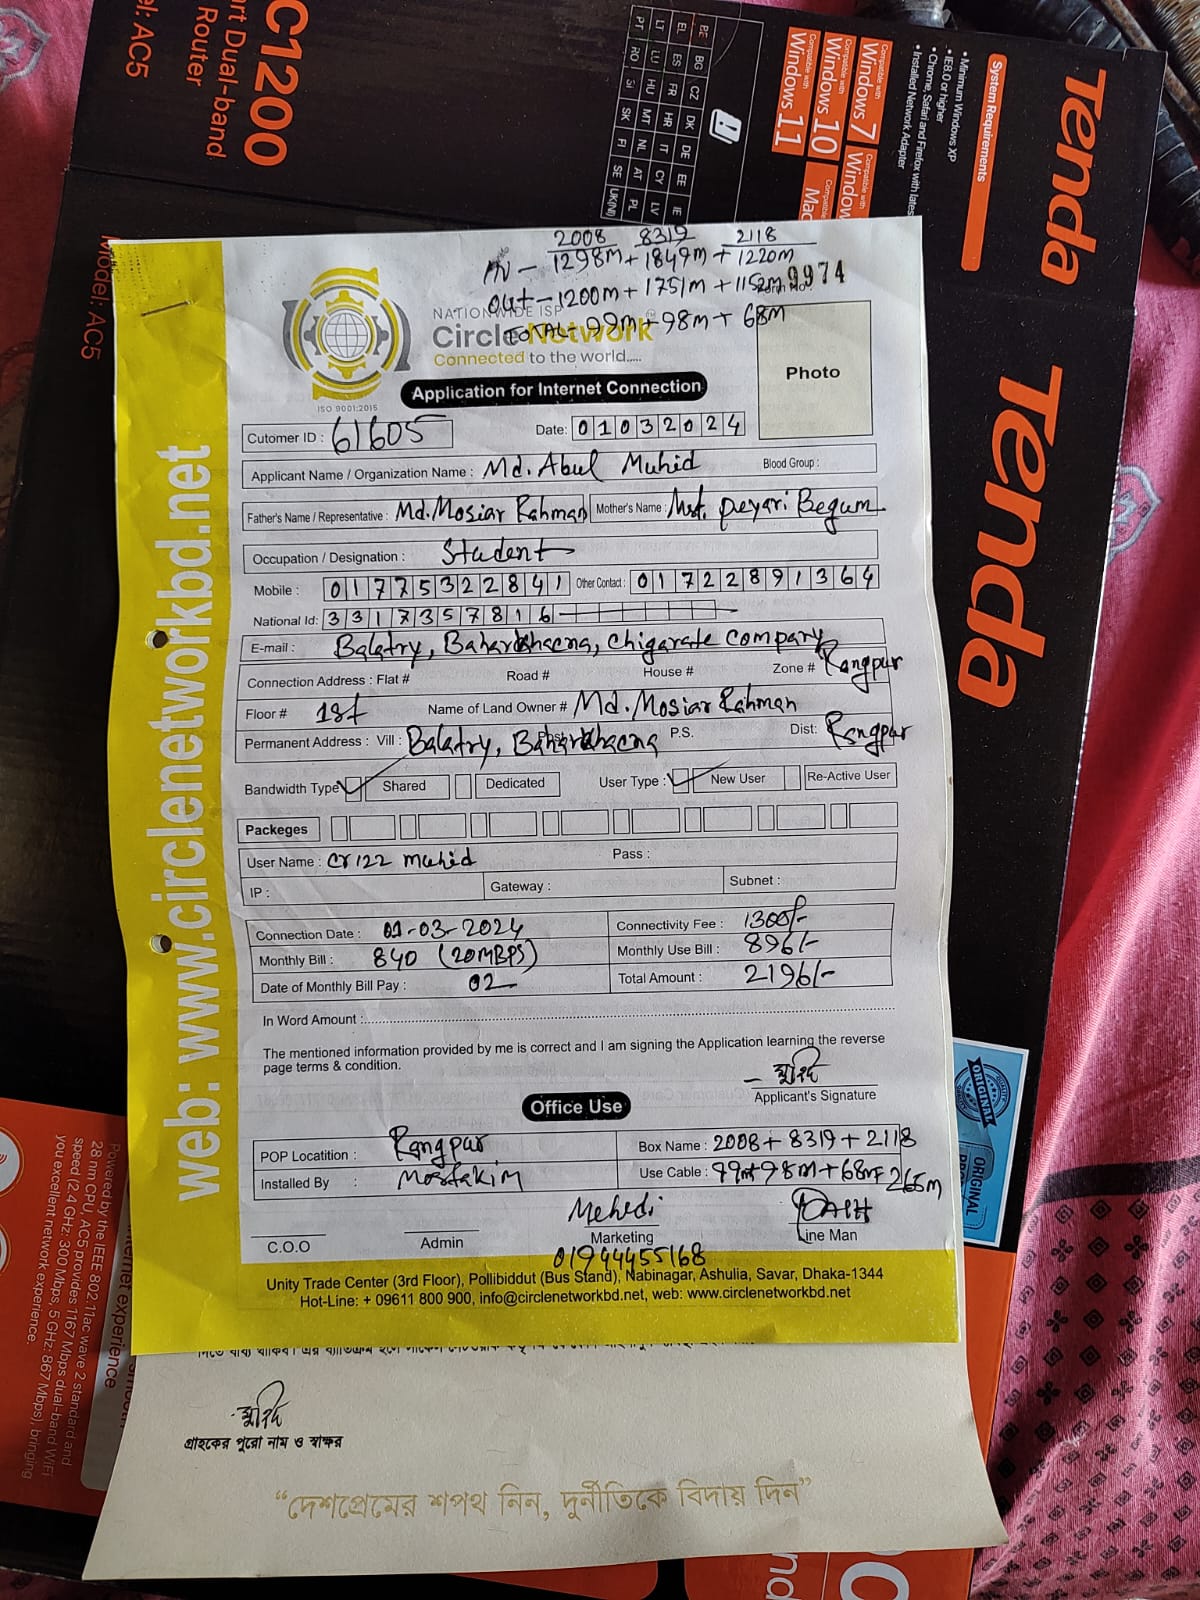 C1200
art Dual-band
Router
Model: AC5
Tenda
Tenda
System Requirements
• Minimum Windows XP
• IE8.0 or higher
• Chrome, Safari and Firefox with latest
• Installed Network Adapter
Compatible with
Windows 7
Compatible with
Windows 10
Compatible with
Windows 11
BE BG CZ DK DE EE IE
EL ES FR HR IT CY LV
LT LU HU MT NL AT PL
PT RO SI SK FI SE UK(NI)
Model: AC5
2008 8319 2118
IN - 1298m + 1849m + 1220m
out - 1200m + 1751m + 1152m
9974
TOTAL= 99m + 98m + 68m
NATIONWIDE ISP
Circle Network
Connected to the world.....
ISO 9001:2015
Application for Internet Connection
Photo
Cutomer ID : 61605
Date: 01032024
Applicant Name / Organization Name : Md. Abul Muhid Blood Group :
Father's Name / Representative : Md. Mosiar Rahman Mother's Name : Mst. peyari Begum
Occupation / Designation : Student
Mobile : 01775322841 Other Contact : 01722891364
National Id: 3317357816
E-mail : Balatry, Baharkhacna, Chigarate company
Connection Address : Flat # Road # House # Zone # Rangpur
Floor # 1st Name of Land Owner # Md. Mosiar Rahman
Permanent Address : Vill : Balatry, Baharkhacna P.S. Dist: Rangpur
Bandwidth Type Shared Dedicated User Type : New User Re-Active User
Packeges
User Name : cr122 muhid Pass :
IP : Gateway : Subnet :
Connection Date : 01-03-2024 Connectivity Fee : 1300/-
Monthly Bill : 840 (20MBPS) Monthly Use Bill : 896/-
Date of Monthly Bill Pay : 02 Total Amount : 2196/-
In Word Amount :
The mentioned information provided by me is correct and I am signing the Application learning the reverse
page terms & condition.
মুহিদ
Applicant's Signature
Office Use
POP Locatition : Rangpur Box Name : 2008 + 8319 + 2118
Installed By : Mostakim Use Cable : 99m+98m+68m= 265m
Mehedi
C.O.O Admin Marketing Line Man
01944455168
Unity Trade Center (3rd Floor), Pollibiddut (Bus Stand), Nabinagar, Ashulia, Savar, Dhaka-1344
Hot-Line: + 09611 800 900, info@circlenetworkbd.net, web: www.circlenetworkbd.net
web: www.circlenetworkbd.net
মুহিদ
গ্রাহকের পুরো নাম ও স্বাক্ষর
“দেশপ্রেমের শপথ নিন, দুর্নীতিকে বিদায় দিন”
ORIGINAL
ORIGINAL
Powered by the IEEE 802.11ac wave 2 standard and
28 nm CPU, AC5 provides 1167 Mbps dual-band WiFi
speed (2.4 GHz: 300 Mbps, 5 GHz: 867 Mbps), bringing
you excellent network experience.